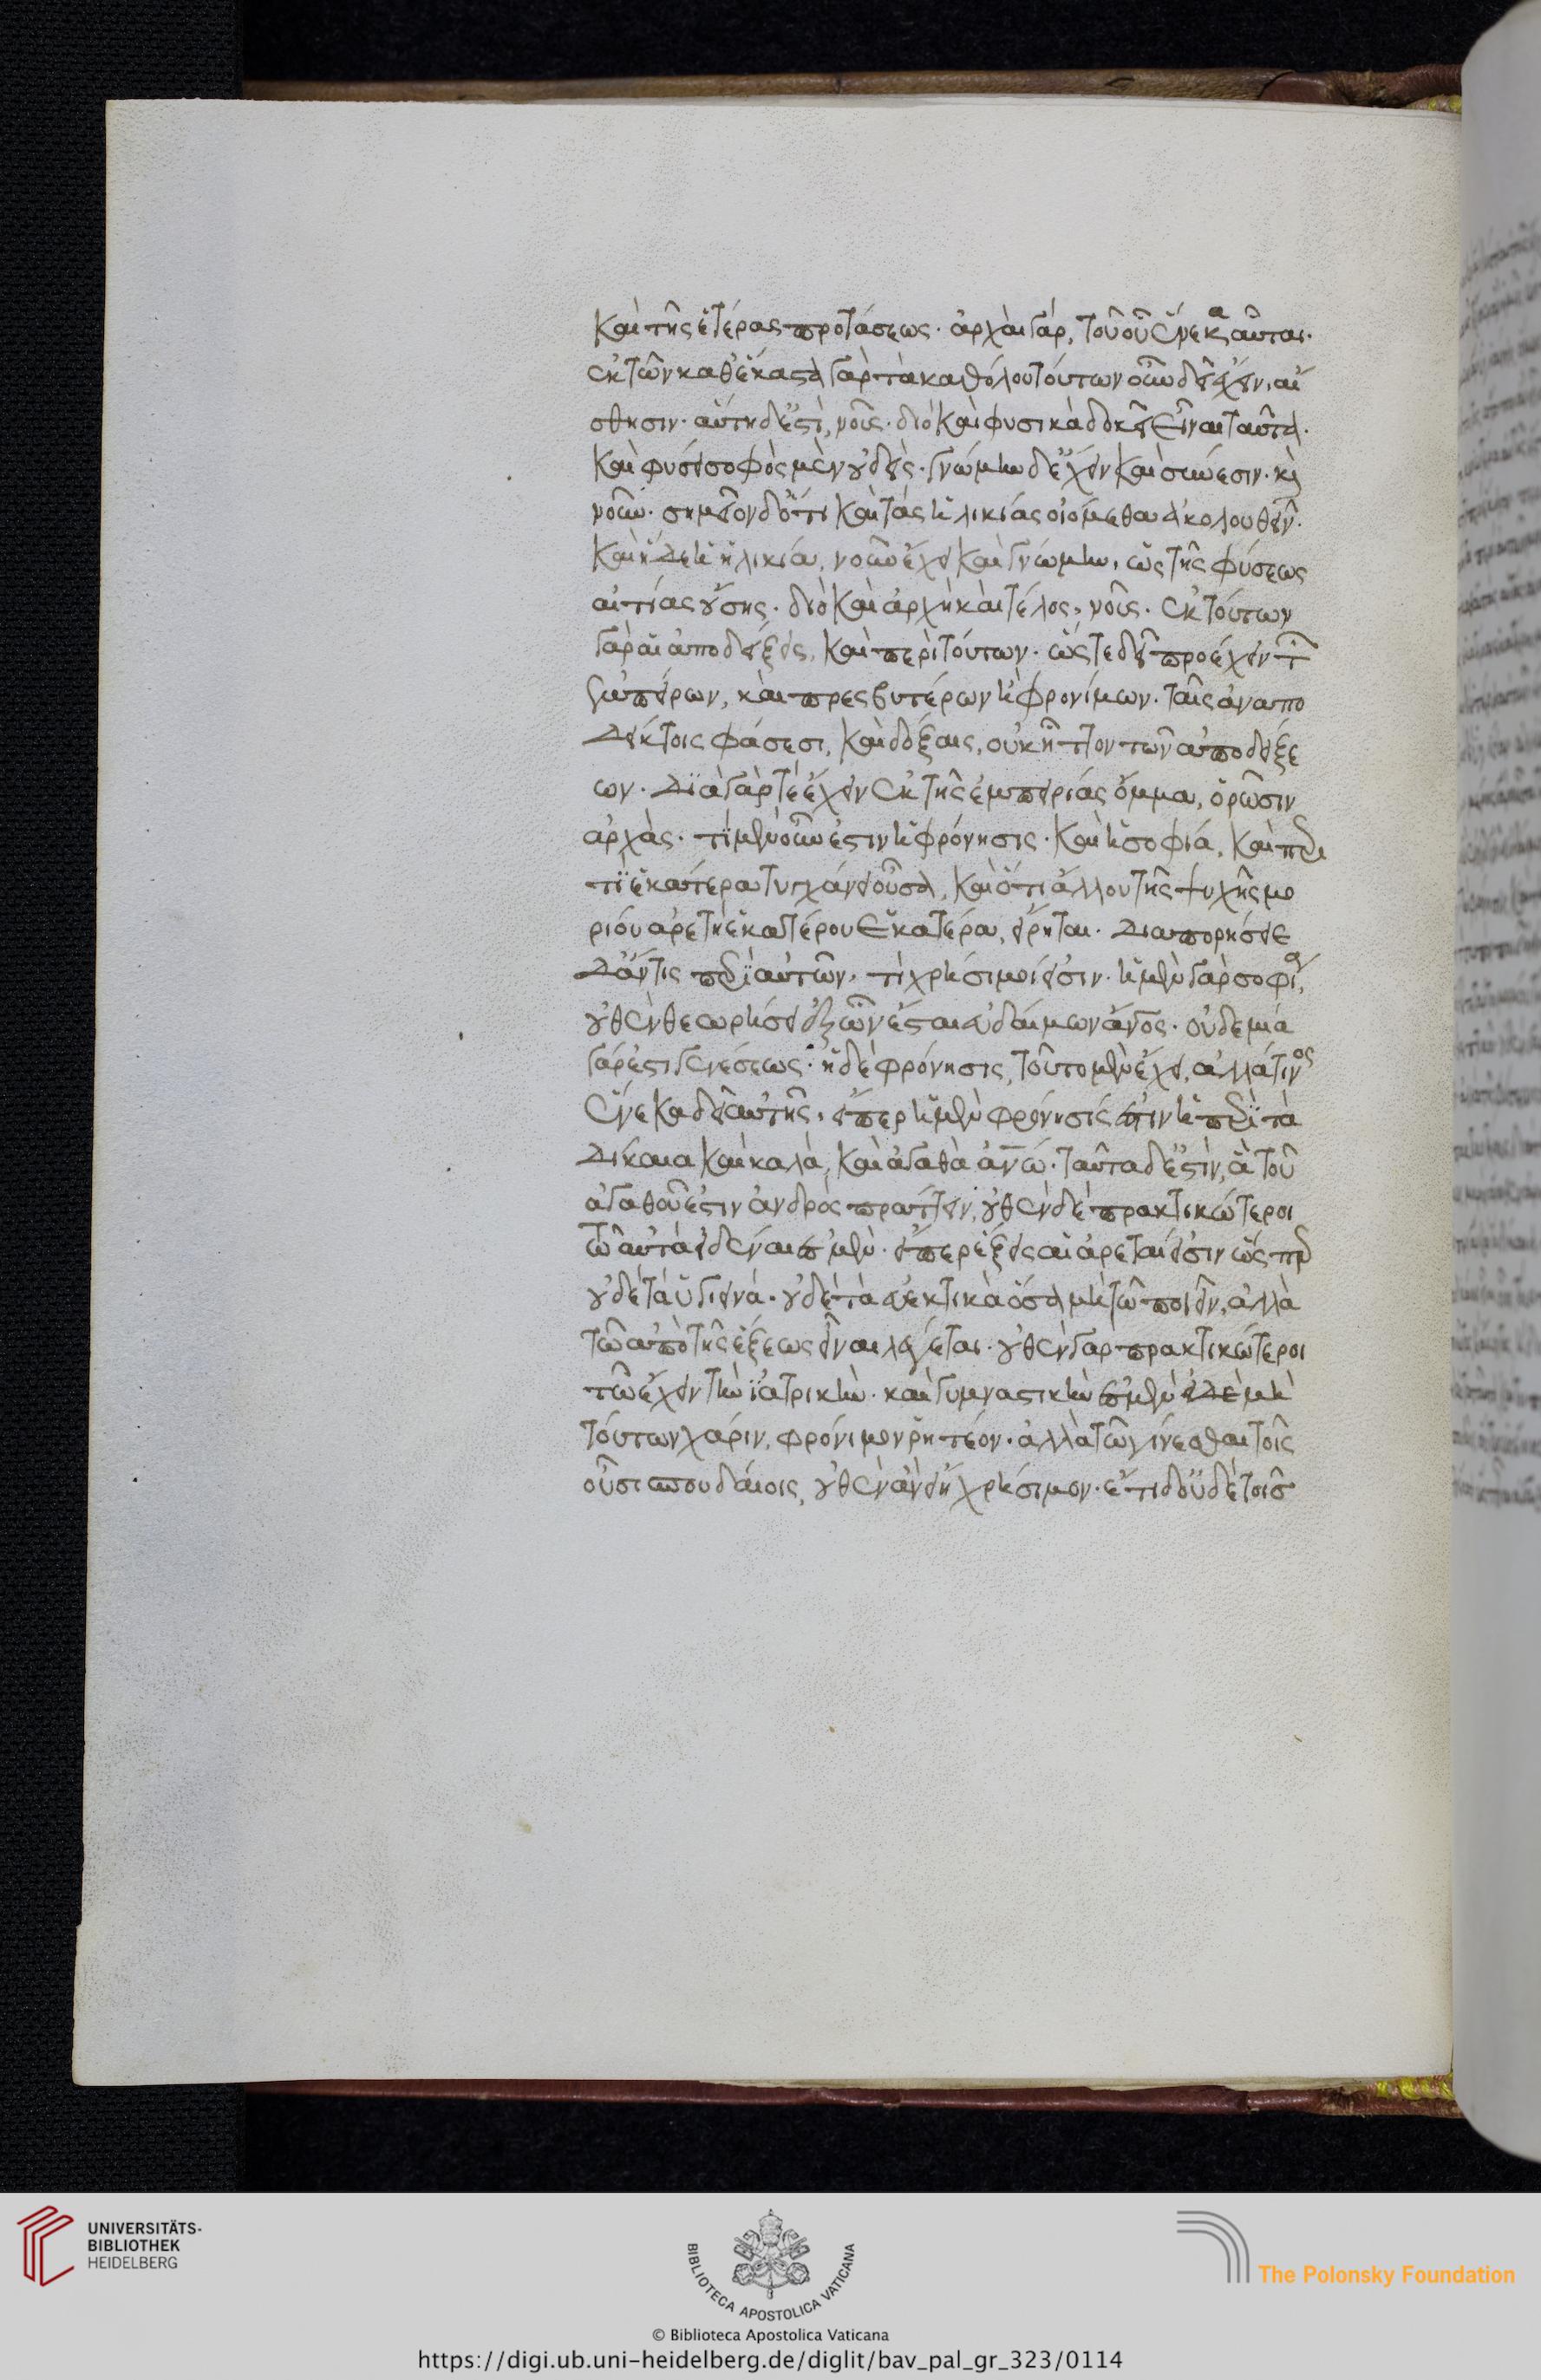 καὶ τῆς ἑτέρας προτάσεως· ἀρχαὶ γὰρ, τοῦ οὗ ἕνεκα αὗται·
ἐκ τῶν καθ' ἕκαστα γὰρ τὰ καθόλου τούτων οὖν δεῖ ἔχειν, αἴ
σθησιν· αὕτη δ' ἐστὶ, νοῦς· διὸ καὶ φυσικὰ δοκεῖ εἶναι ταῦτα·
καὶ φύσει σοφὸς μὲν οὐδεὶς· γνώμην δ' ἔχειν καὶ σύνεσιν· καὶ
νοῦν· σημεῖον δ' ὅτι καὶ ταῖς ἡλικίαις οἰόμεθα ἀκολουθεῖν·
καὶ ἥδε ἡ ἡλικία, νοῦν ἔχει καὶ γνώμην, ὡς τῆς φύσεως
αἰτίας οὔσης· διὸ καὶ ἀρχὴ καὶ τέλος, νοῦς· ἐκ τούτων
γὰρ αἱ ἀποδείξεις, καὶ περὶ τούτων· ὥστε δεῖ προσέχειν τῶν
ἐμπείρων, καὶ πρεσβυτέρων ἢ φρονίμων· ταῖς ἀναπο
δείκτοις φάσεσι, καὶ δόξαις, οὐχ ἧττον τῶν ἀποδείξε
ων· διὰ γὰρ τὸ ἔχειν ἐκ τῆς ἐμπειρίας ὄμμα, ὁρῶσιν
ἀρχὰς· τί μὲν οὖν ἐστιν ἡ φρόνησις· καὶ ἡ σοφία, καὶ περὶ
τί ἑκατέρα τυγχάνει οὖσα, καὶ ὅτι ἄλλου τῆς ψυχῆς μο
ρίου ἀρετὴ ἑκατέρου ἑκατέρα, εἴρηται· διαπορήσειε
δ' ἄν τις περὶ αὐτῶν, τί χρήσιμοί εἰσιν· ἡ μὲν γὰρ σοφία,
οὐθὲν θεωρήσει ἐξ ὧν ἔσται εὐδαίμων ἄνος· οὐδεμιᾶς
γάρ ἐστι γενέσεως· ἡ δὲ φρόνησις, τοῦτο μὲν ἔχει, ἀλλὰ τίνος
ἕνεκα δεῖ αὐτῆς, εἴπερ ἡ μὲν φρόνησίς ἐστιν ἡ περὶ τὰ
δίκαια καὶ καλὰ, καὶ ἀγαθὰ ἀνω· ταῦτα δ' ἐστὶν, ἃ τοῦ
ἀγαθοῦ ἐστιν ἀνδρὸς πράττειν, οὐθὲν δὲ πρακτικώτεροι
τῷ αὐτὰ εἰδέναι ἐσμέν· εἴπερ ἕξεις αἱ ἀρεταί εἰσιν ὥσπερ
οὐδὲ τὰ ὑγιεινά· οὐδὲ τὰ εὐεκτικὰ ὅσα μὴ τῷ ποιεῖν, ἀλλὰ
τῷ ἀπὸ τῆς ἕξεως εἶναι λέγεται· οὐθὲν γὰρ πρακτικώτεροι
τῷ ἔχειν τὴν ἰατρικὴν· καὶ γυμναστικήν ἐσμέν εἰ δὲ μὴ
τούτων χάριν, φρόνιμον ῥητέον· ἀλλὰ τῷ γίνεσθαι τοῖς
οὖσι σπουδαίοις, οὐθὲν ἂν εἴη χρήσιμον· ἔτι δ' οὐδὲ τοῖς
UNIVERSITÄTS-
BIBLIOTHEK
HEIDELBERG
BIBLIOTECA APOSTOLICA VATICANA
The Polonsky Foundation
© Biblioteca Apostolica Vaticana
https://digi.ub.uni-heidelberg.de/diglit/bav_pal_gr_323/0114